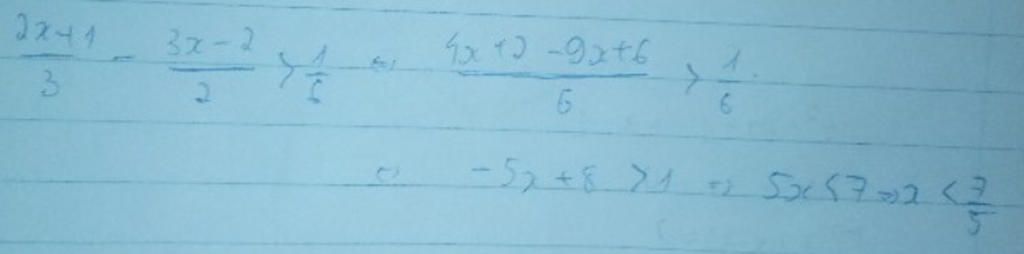 (2x+1)/3 - (3x-2)/2 > 1/6 ⇔ (4x+2-9x+6)/6 > 1/6
⇔ -5x+8 > 1 ⇒ 5x < 7 ⇒ x < 7/5